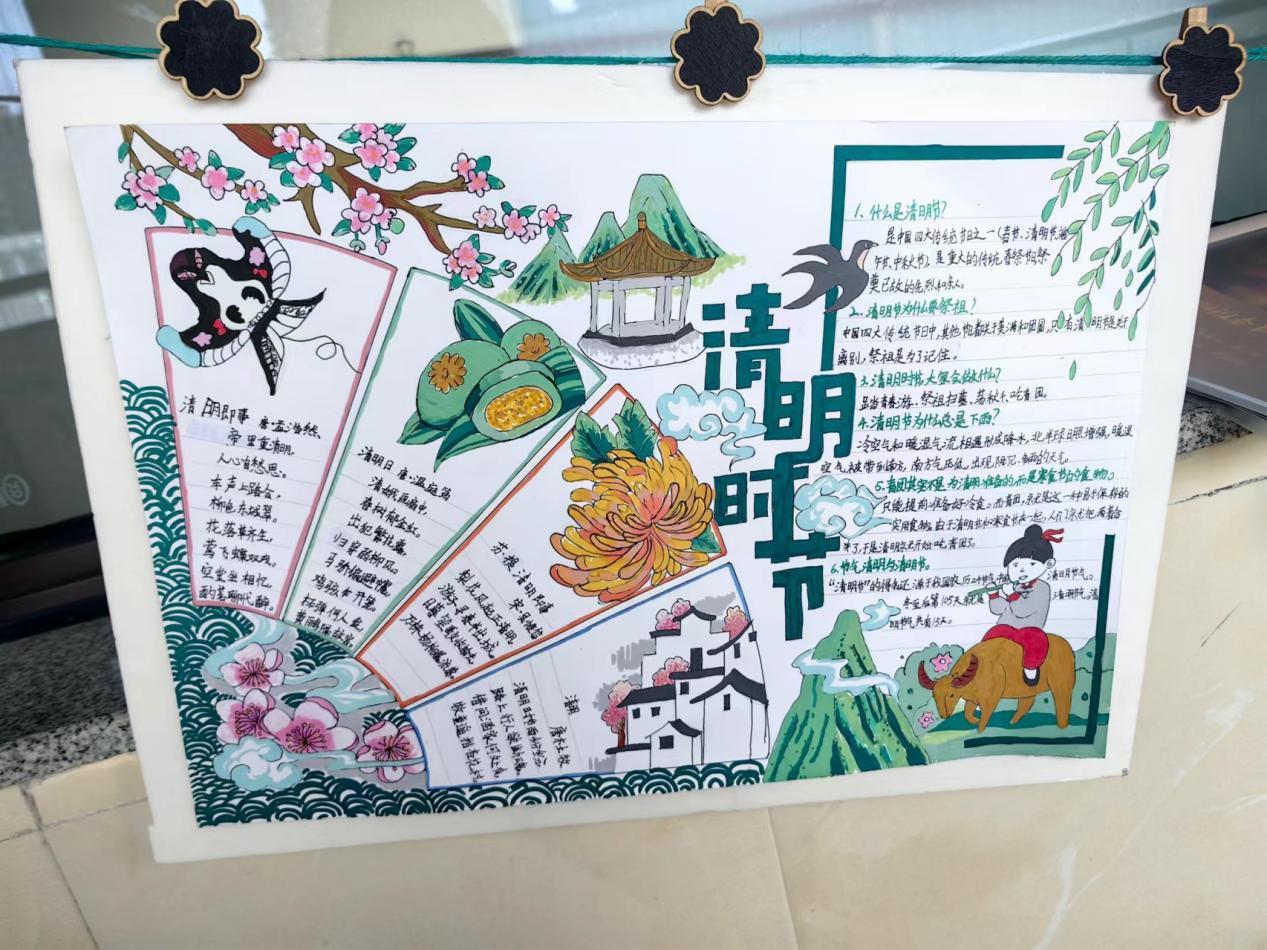 清明即事 唐·孟浩然
帝里重清明,
人心自愁思。
车声上路合,
柳色东城翠。
花落草齐生,
莺飞蝶双戏。
空堂坐相忆,
酌茗聊代醉。
清明日 唐·温庭筠
清娥画扇中,
春树郁金红。
出犯繁花露,
归穿弱柳风。
马骄偏避幰,
鸡骇乍开笼。
柘弹何人发,
黄鹂隔故宫。
苏堤清明即事
宋·吴惟信
梨花风起正清明,
游子寻春半出城。
日暮笙歌收拾去,
万株杨柳属流莺。
清明
唐·杜牧
清明时节雨纷纷
路上行人欲断魂。
借问酒家何处有,
牧童遥指杏花村。
清明时节
1. 什么是清明节?
是中国四大传统节日之一(春节、清明节、端
午节、中秋节)是重大的传统春祭节日,祭
奠已故的先烈和亲人。
2. 清明节为什么要祭祖?
中国四大传统节日中,其他都关于美满和团圆,只有清明节是关于
离别,祭祖是为了记住。
3. 清明时节大家会做什么?
踏青春游、祭祖扫墓、荡秋千、吃青团。
4. 清明节为什么总是下雨?
冷空气和暖湿气流相遇形成降水,北半球日照增强,暖湿
空气被带到南方,南方气压低,出现阴沉、多雨的天气。
5. 青团其实不是为清明准备的,而是寒食节的食物。
只能提前准备好冷食。而青团,就是这一种易于保存的
实用食物。由于清明节和寒食节在一起,人们就把两者合
来了,于是清明就开始吃青团了。
6. 节气清明与清明节。
“清明节”的得名还源于我国农历24节气中
清明节气。
冬至后第105天就是
清明节气,清
明节气共有15天。